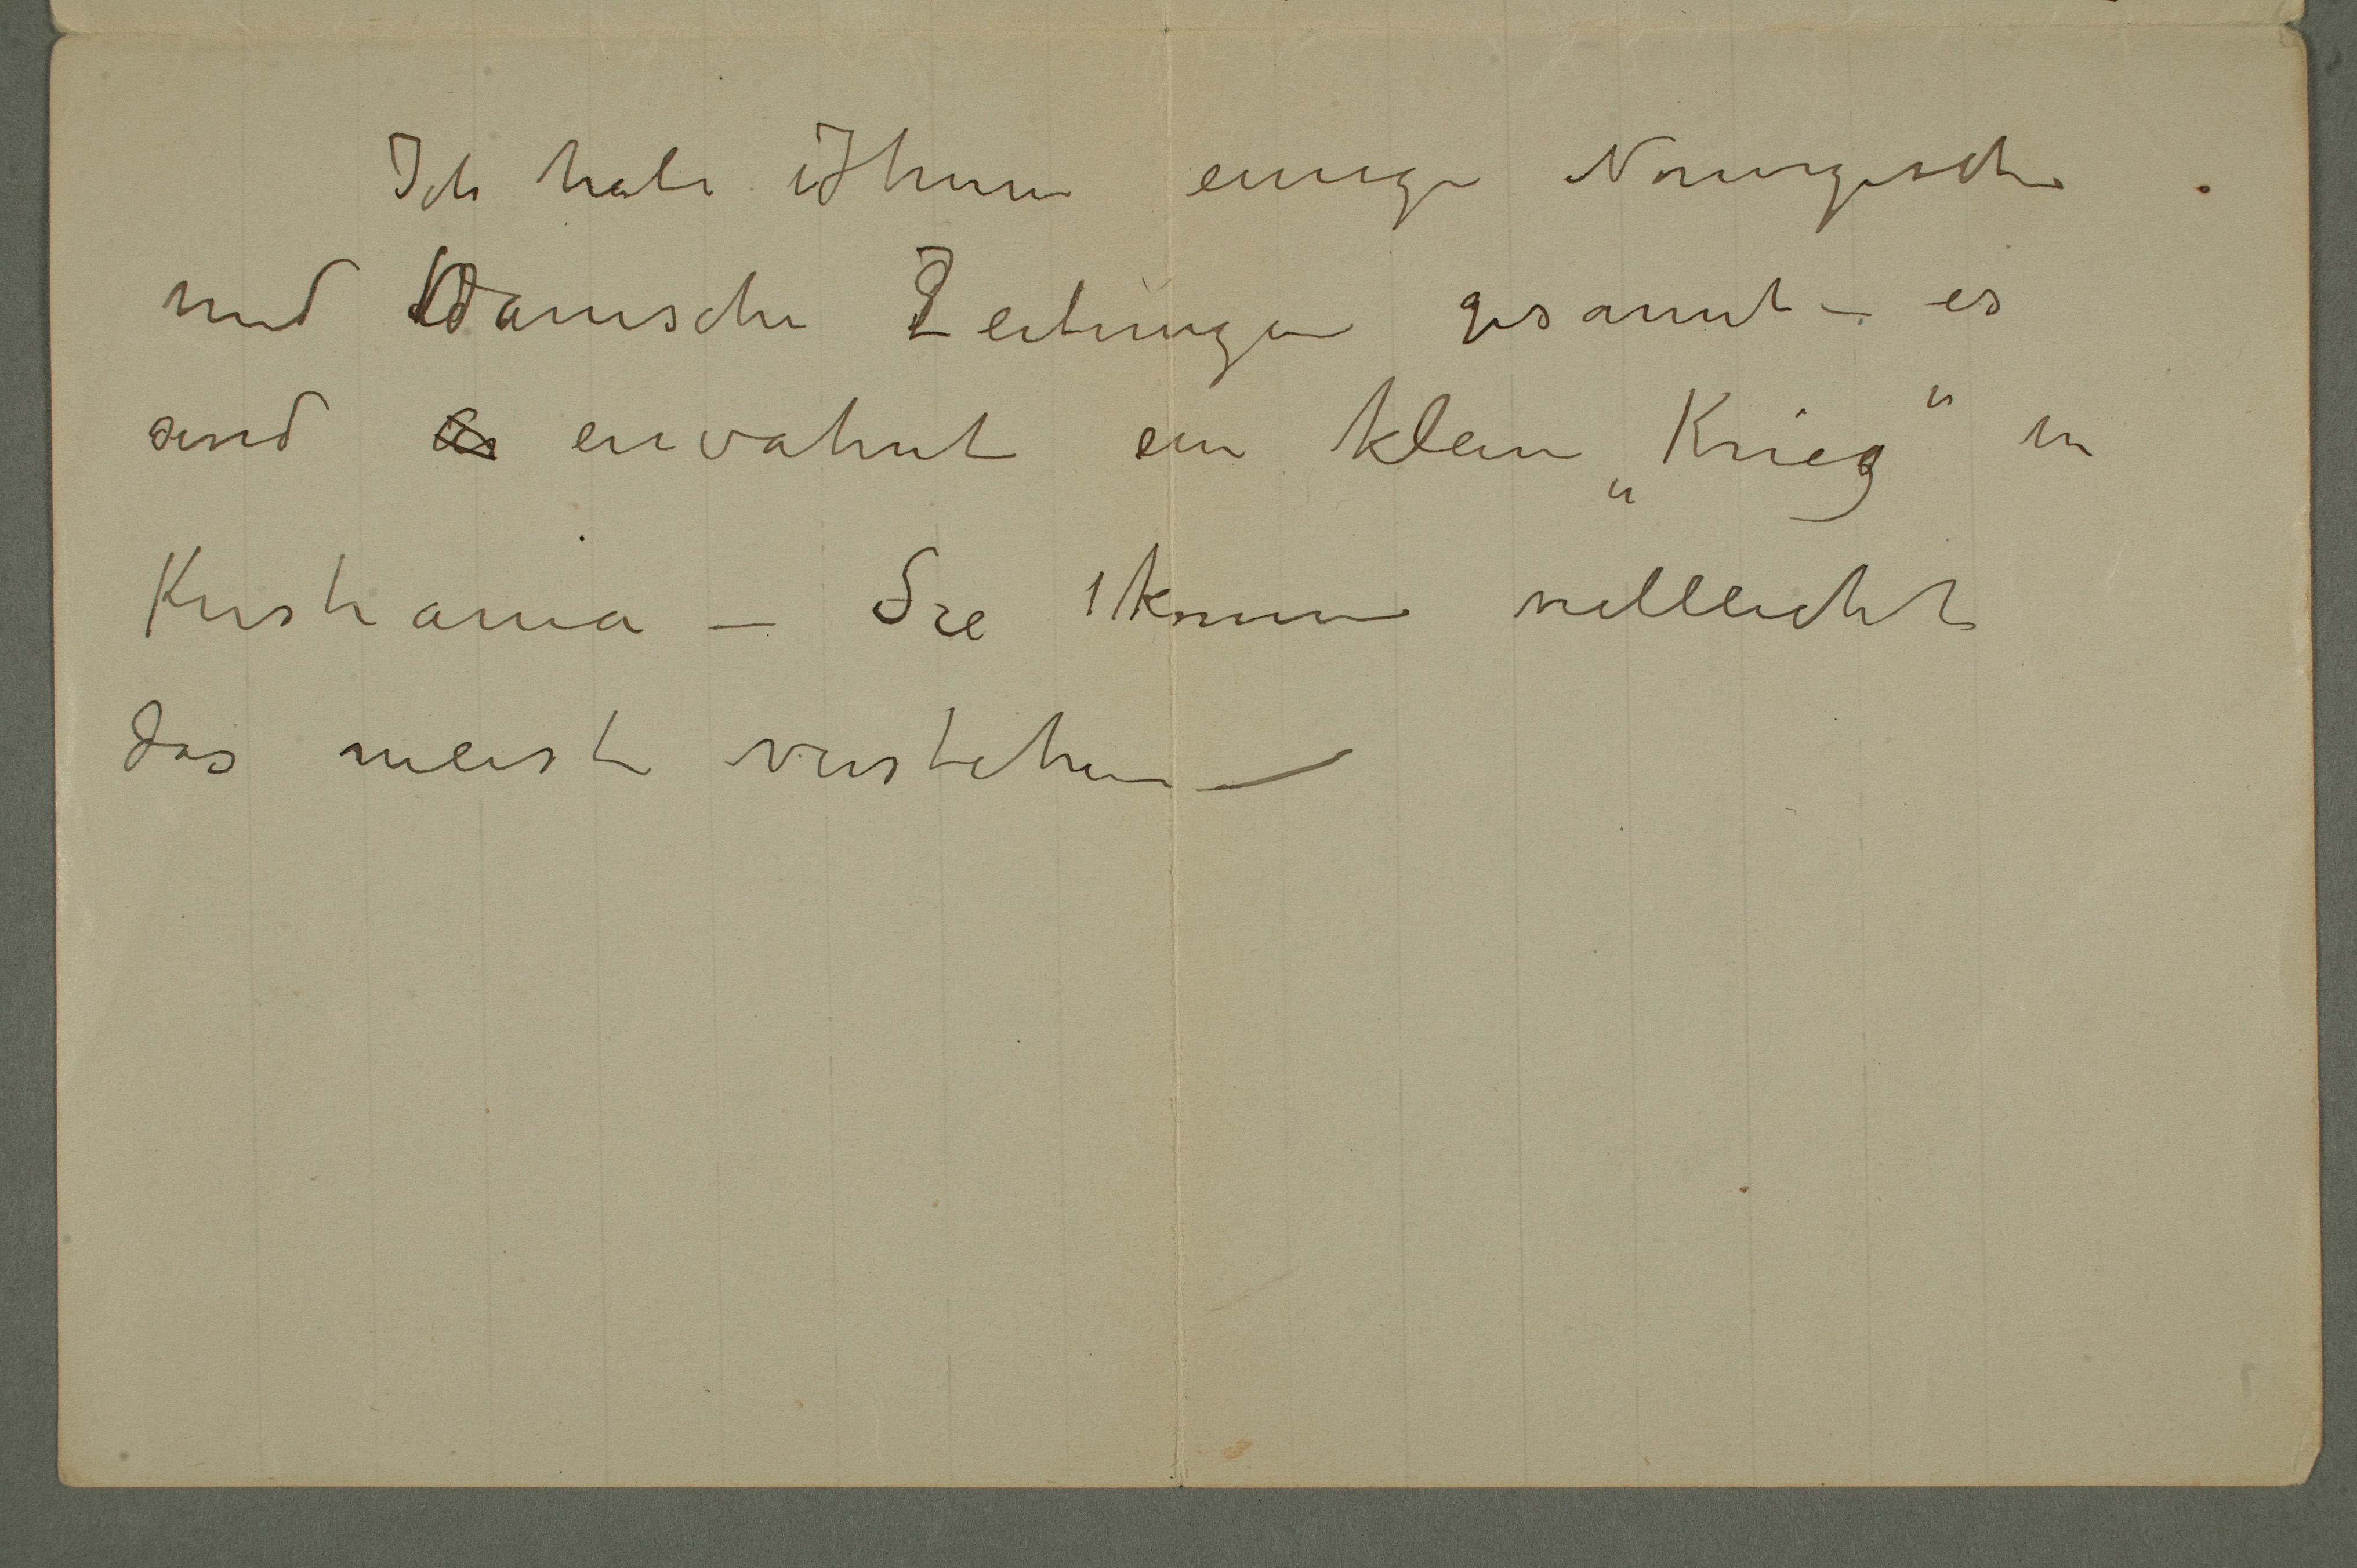 Ich habe Ihnen einige Norwegische
und Danische Zeitungen gesannt – es
sind erwahnt ein klein „Krieg" in
Kristiania – Sie können villeicht
das meiste verstehen –